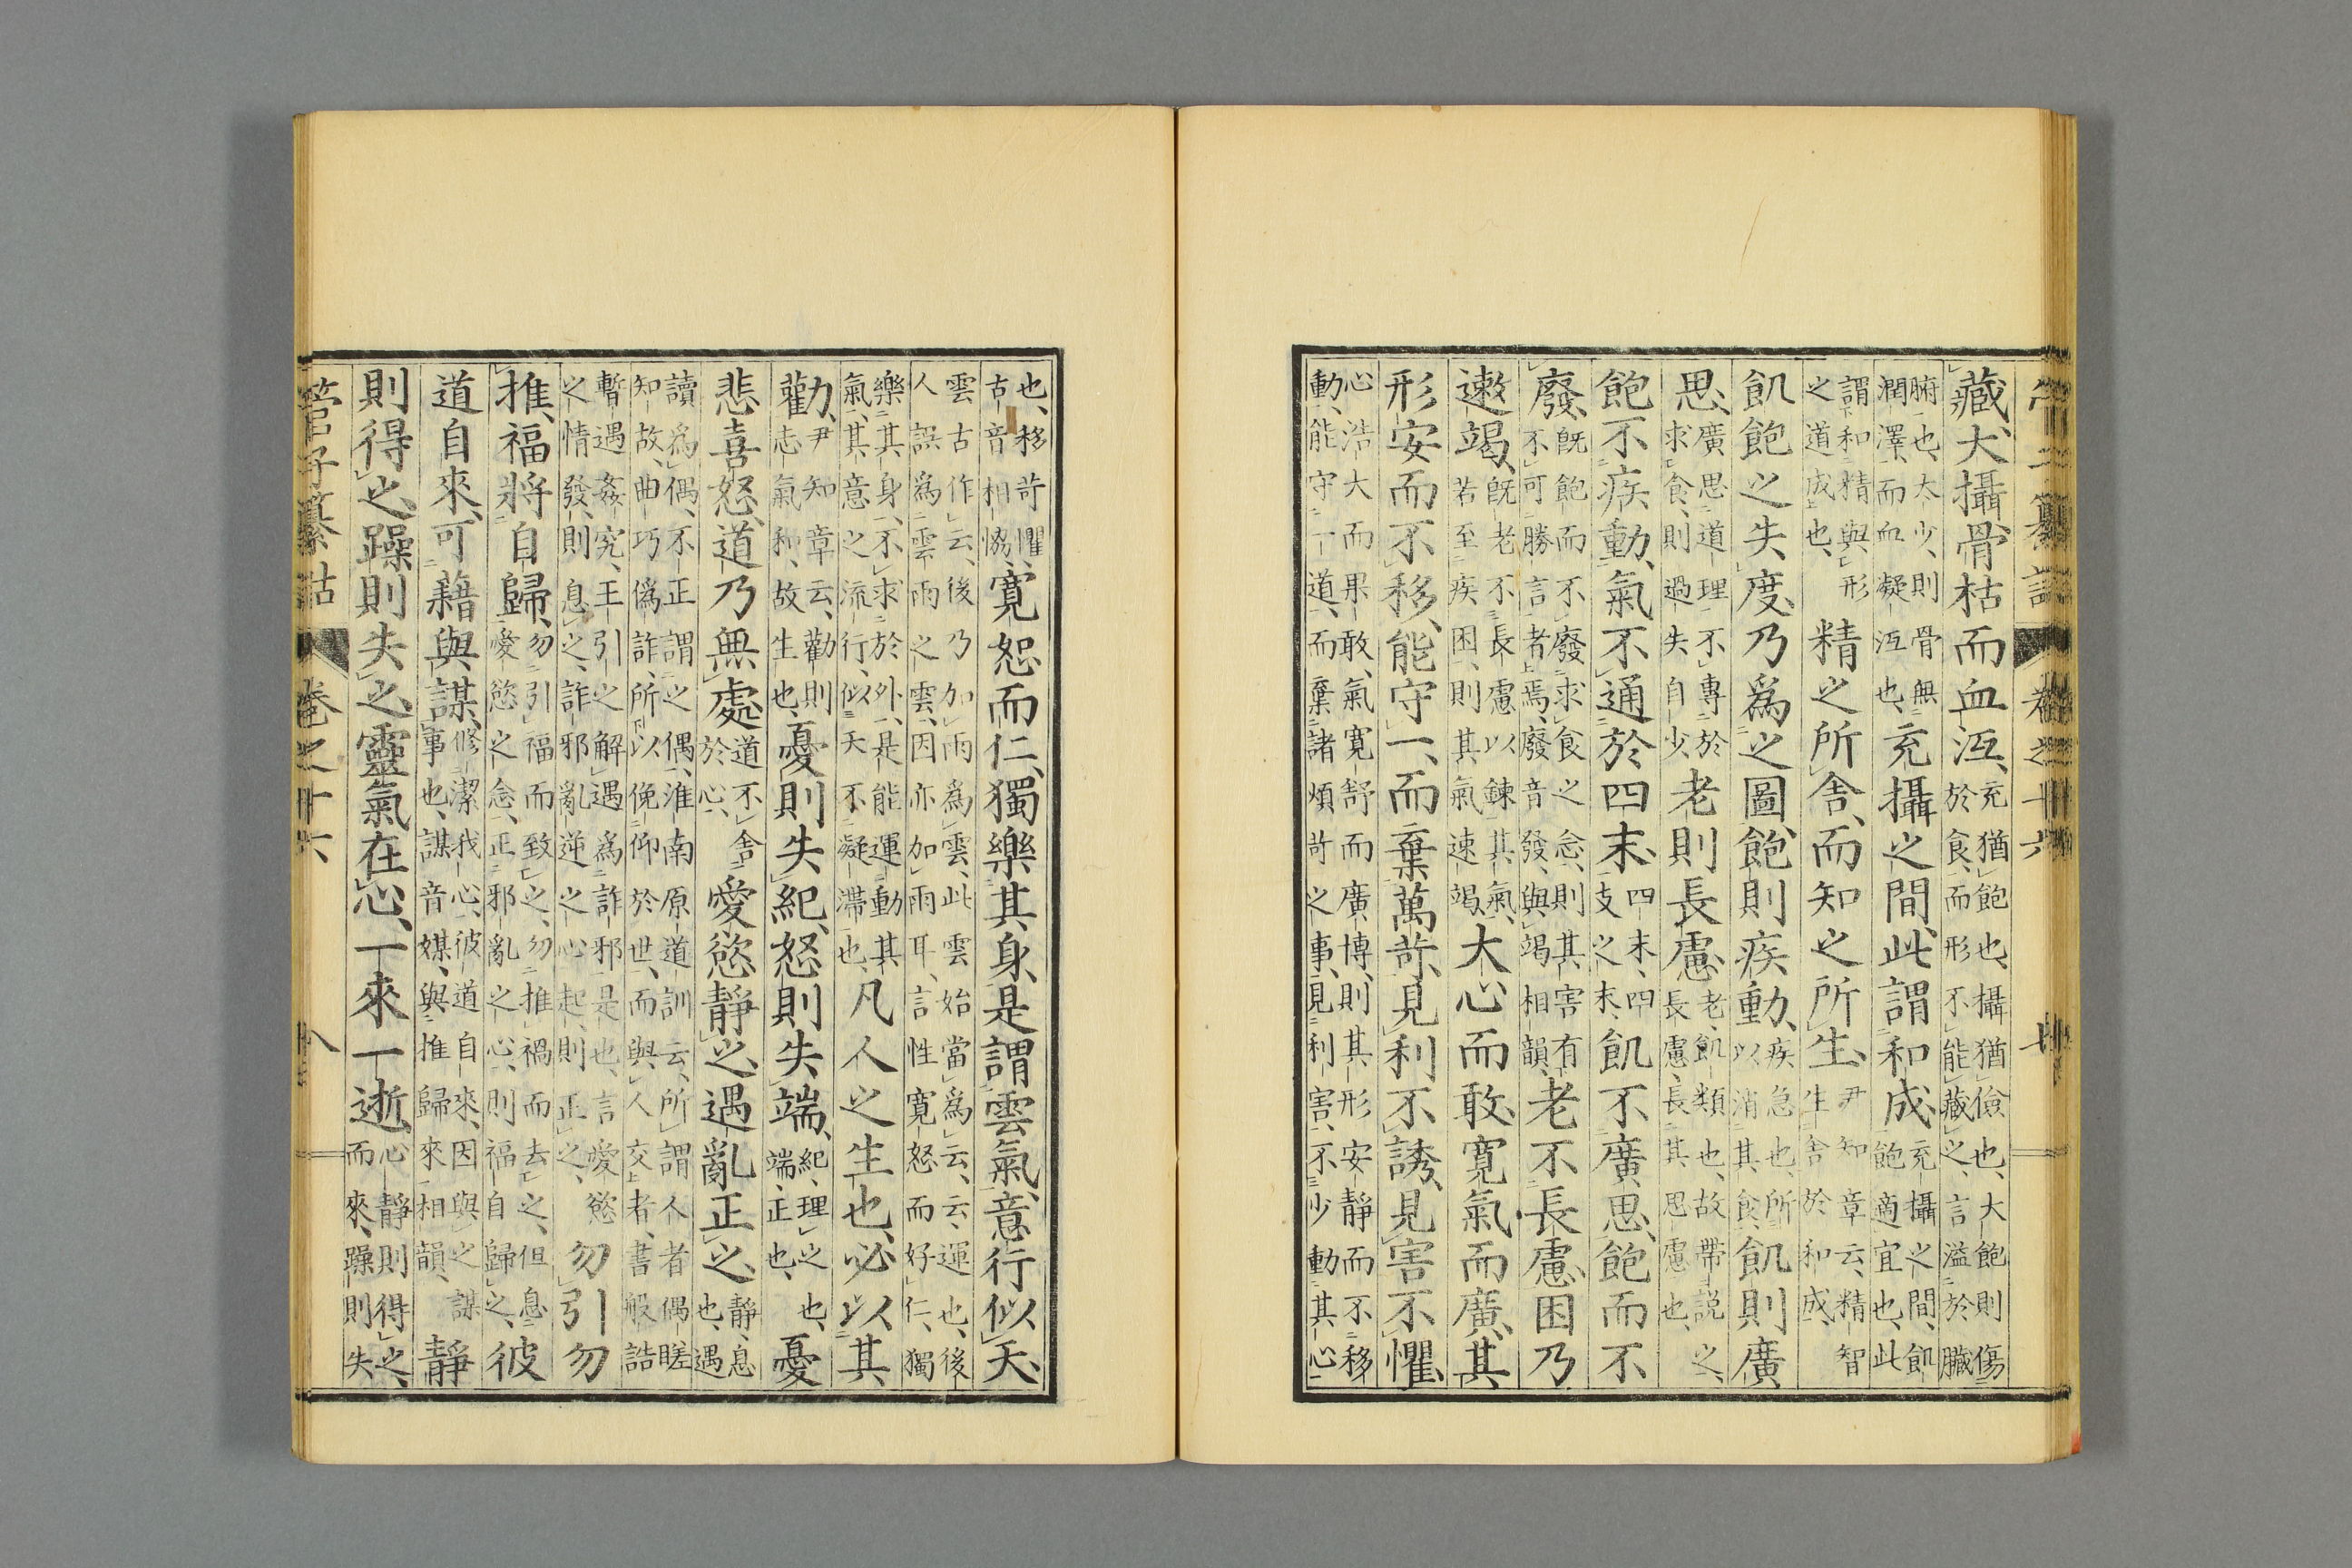 管子纂詁 卷之十六 七
藏、大攝骨枯而血沍、充猶飽也、攝猶儉也、大飽則傷於食、而形不能藏之、言溢於臟
腑也、太少、則骨無潤澤、而血凝沍也、充攝之間、此謂和成、充攝之間、飢飽適宜也、此
謂和精與形之道成也、精之所舍、而知之所生、尹知章云、精智生舍於和成、
飢飽之失度、乃爲之圖、飽則疾動、疾急也、所以消其食、飢則廣
思、廣思道理、不專於求食、則過失自少、老則長慮、老飢類也、故帶説之、長慮、長其思慮也、
飽不疾動、氣不通於四末、四末、四支之末、飢不廣思、飽而不
廢、既飽而不廢求食之念、則其害有不可勝言者焉、廢音發、與竭相韻、老不長慮、困乃
遬竭、既老不長慮以錬其氣、若至疾困、則其氣速竭、大心而敢、寛氣而廣、其
形安而不移、能守一、而棄萬苛、見利不誘、見害不懼、
心浩大而果敢、氣寛舒而廣博、則其形安靜而不移動、能守一道、而棄諸煩苛之事、見利害、不少動其心
也、移苛懼、古音相協、寛恕而仁、獨樂其身、是謂雲氣、意行似天、
雲古作云、後乃加雨爲雲、此雲始當爲云、云、運也、後人誤爲雲雨之雲、因亦加雨耳、言性寛恕而好仁、獨
樂其身、不求於外、是能運動其氣、其意之流行、似天不凝滯也、凡人之生也、必以其
勸、尹知章云、勸則志氣和、故生也、憂則失紀、怒則失端、紀、理之也、端、正也、憂
悲喜怒、道乃無處、道不舍於心、愛慾靜之、遇亂正之、靜、息也、遇
讀爲偶、不正謂之偶、淮南原道訓云、所謂人者偶䁟知故、曲巧僞詐、所以俛仰於世、而與人交者、書般誥
暫遇姦宄、王引之解遇爲詐邪是也、言愛慾之情發、則息之、詐邪亂逆之心起、則正之、勿引勿
推、福將自歸、勿引福而致之、勿推禍而去之、但息愛慾之念、正邪亂之心、則福自歸之、彼
道自來、可藉與謀、修潔我心、彼道自來、因與之謀事也、謀音媒、與推歸來相韻、靜
則得之、躁則失之、靈氣在心、一來一逝、心靜則得之、而來、躁則失
管子纂詁 卷之十六 八